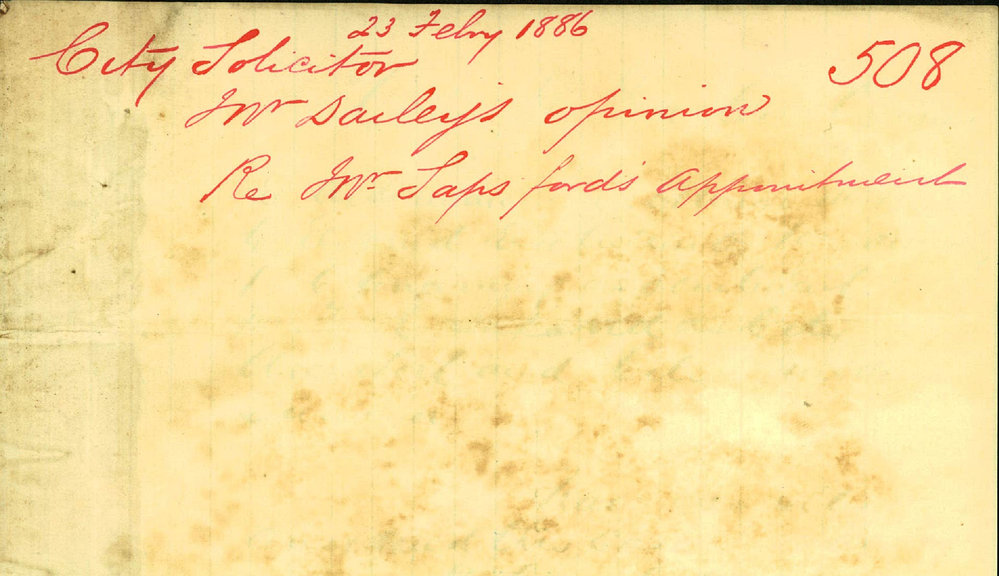 23 Febry 1886
City Solicitor
508
Mr Dailey's opinion
Re Mr Sapsford's Appointment